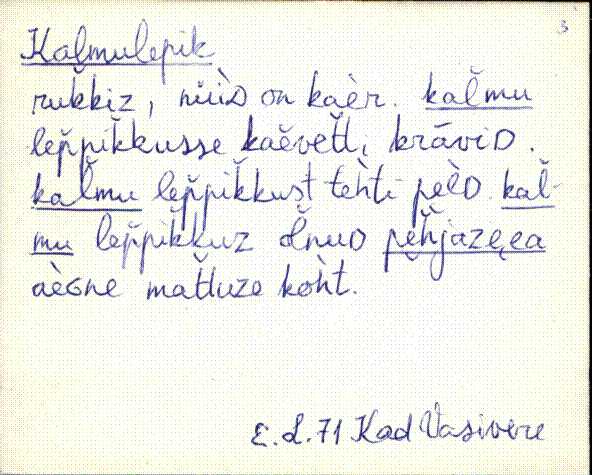 3
Kalmulepik
rukkiz, nüiD on kaèr. kal̆mu
lep̆pik̆kusse kaĕvet̆ti krāviD.
kal̆mu lep̆pik̆kust teh̀ti pèlD. kal̆-
mu lep̆pik̆kuz ol̆nuD pĕh̆jazeea
aèGne mat̆tuze koh̀t.
E. L. 71 Kad Vasivere